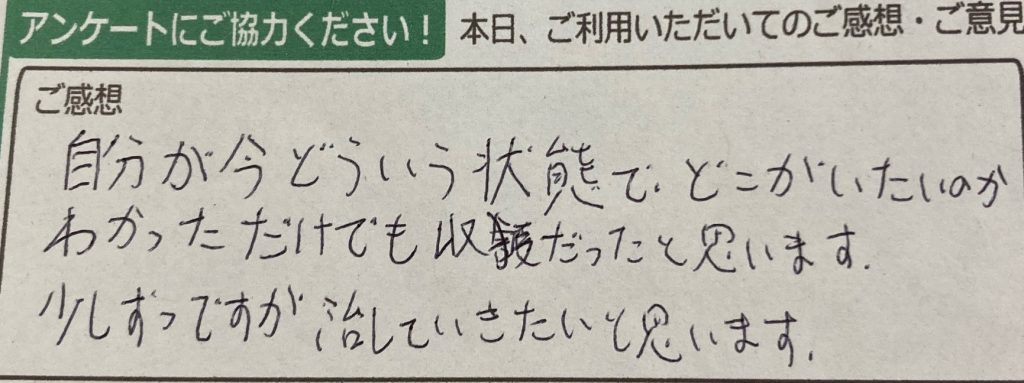 アンケートにご協力ください！ 本日、ご利用いただいてのご感想・ご意見
ご感想
自分が今どういう状態で、どこがいたいのか
わかっただけでも収穫だったと思います。
少しずつですが治していきたいと思います。